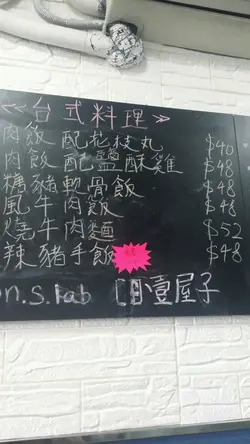 <<台式料理>>
肉飯配花枝丸 $40
肉飯配鹽酥雞 $48
糖豬軟骨飯 $48
風牛肉飯 $48
燒牛肉麵 $52
辣豬手飯 $48
n.s.lab 壹屋子